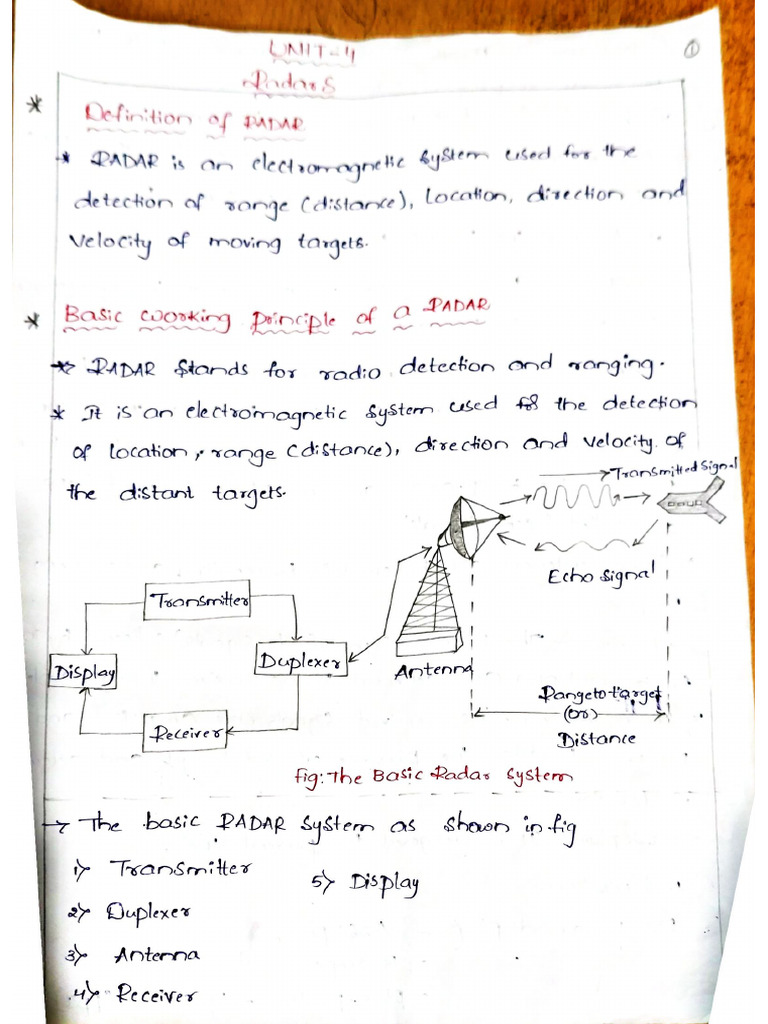 UNIT-4
①
Radars
* Definition of RADAR
* RADAR is an electromagnetic system used for the
detection of range (distance), location, direction and
velocity of moving targets.
* Basic working principle of a RADAR
* RADAR stands for radio detection and ranging.
* It is an electromagnetic system used for the detection
of location, range (distance), direction and velocity of
the distant targets.
Transmitted signal
Echo signal
Transmitter
Duplexer
Display
Antenna
Receiver
Range to target
(or)
Distance
fig: The Basic Radar system
→ The basic RADAR system as shown in fig
1) Transmitter
5) Display
2) Duplexer
3) Antenna
4) Receiver